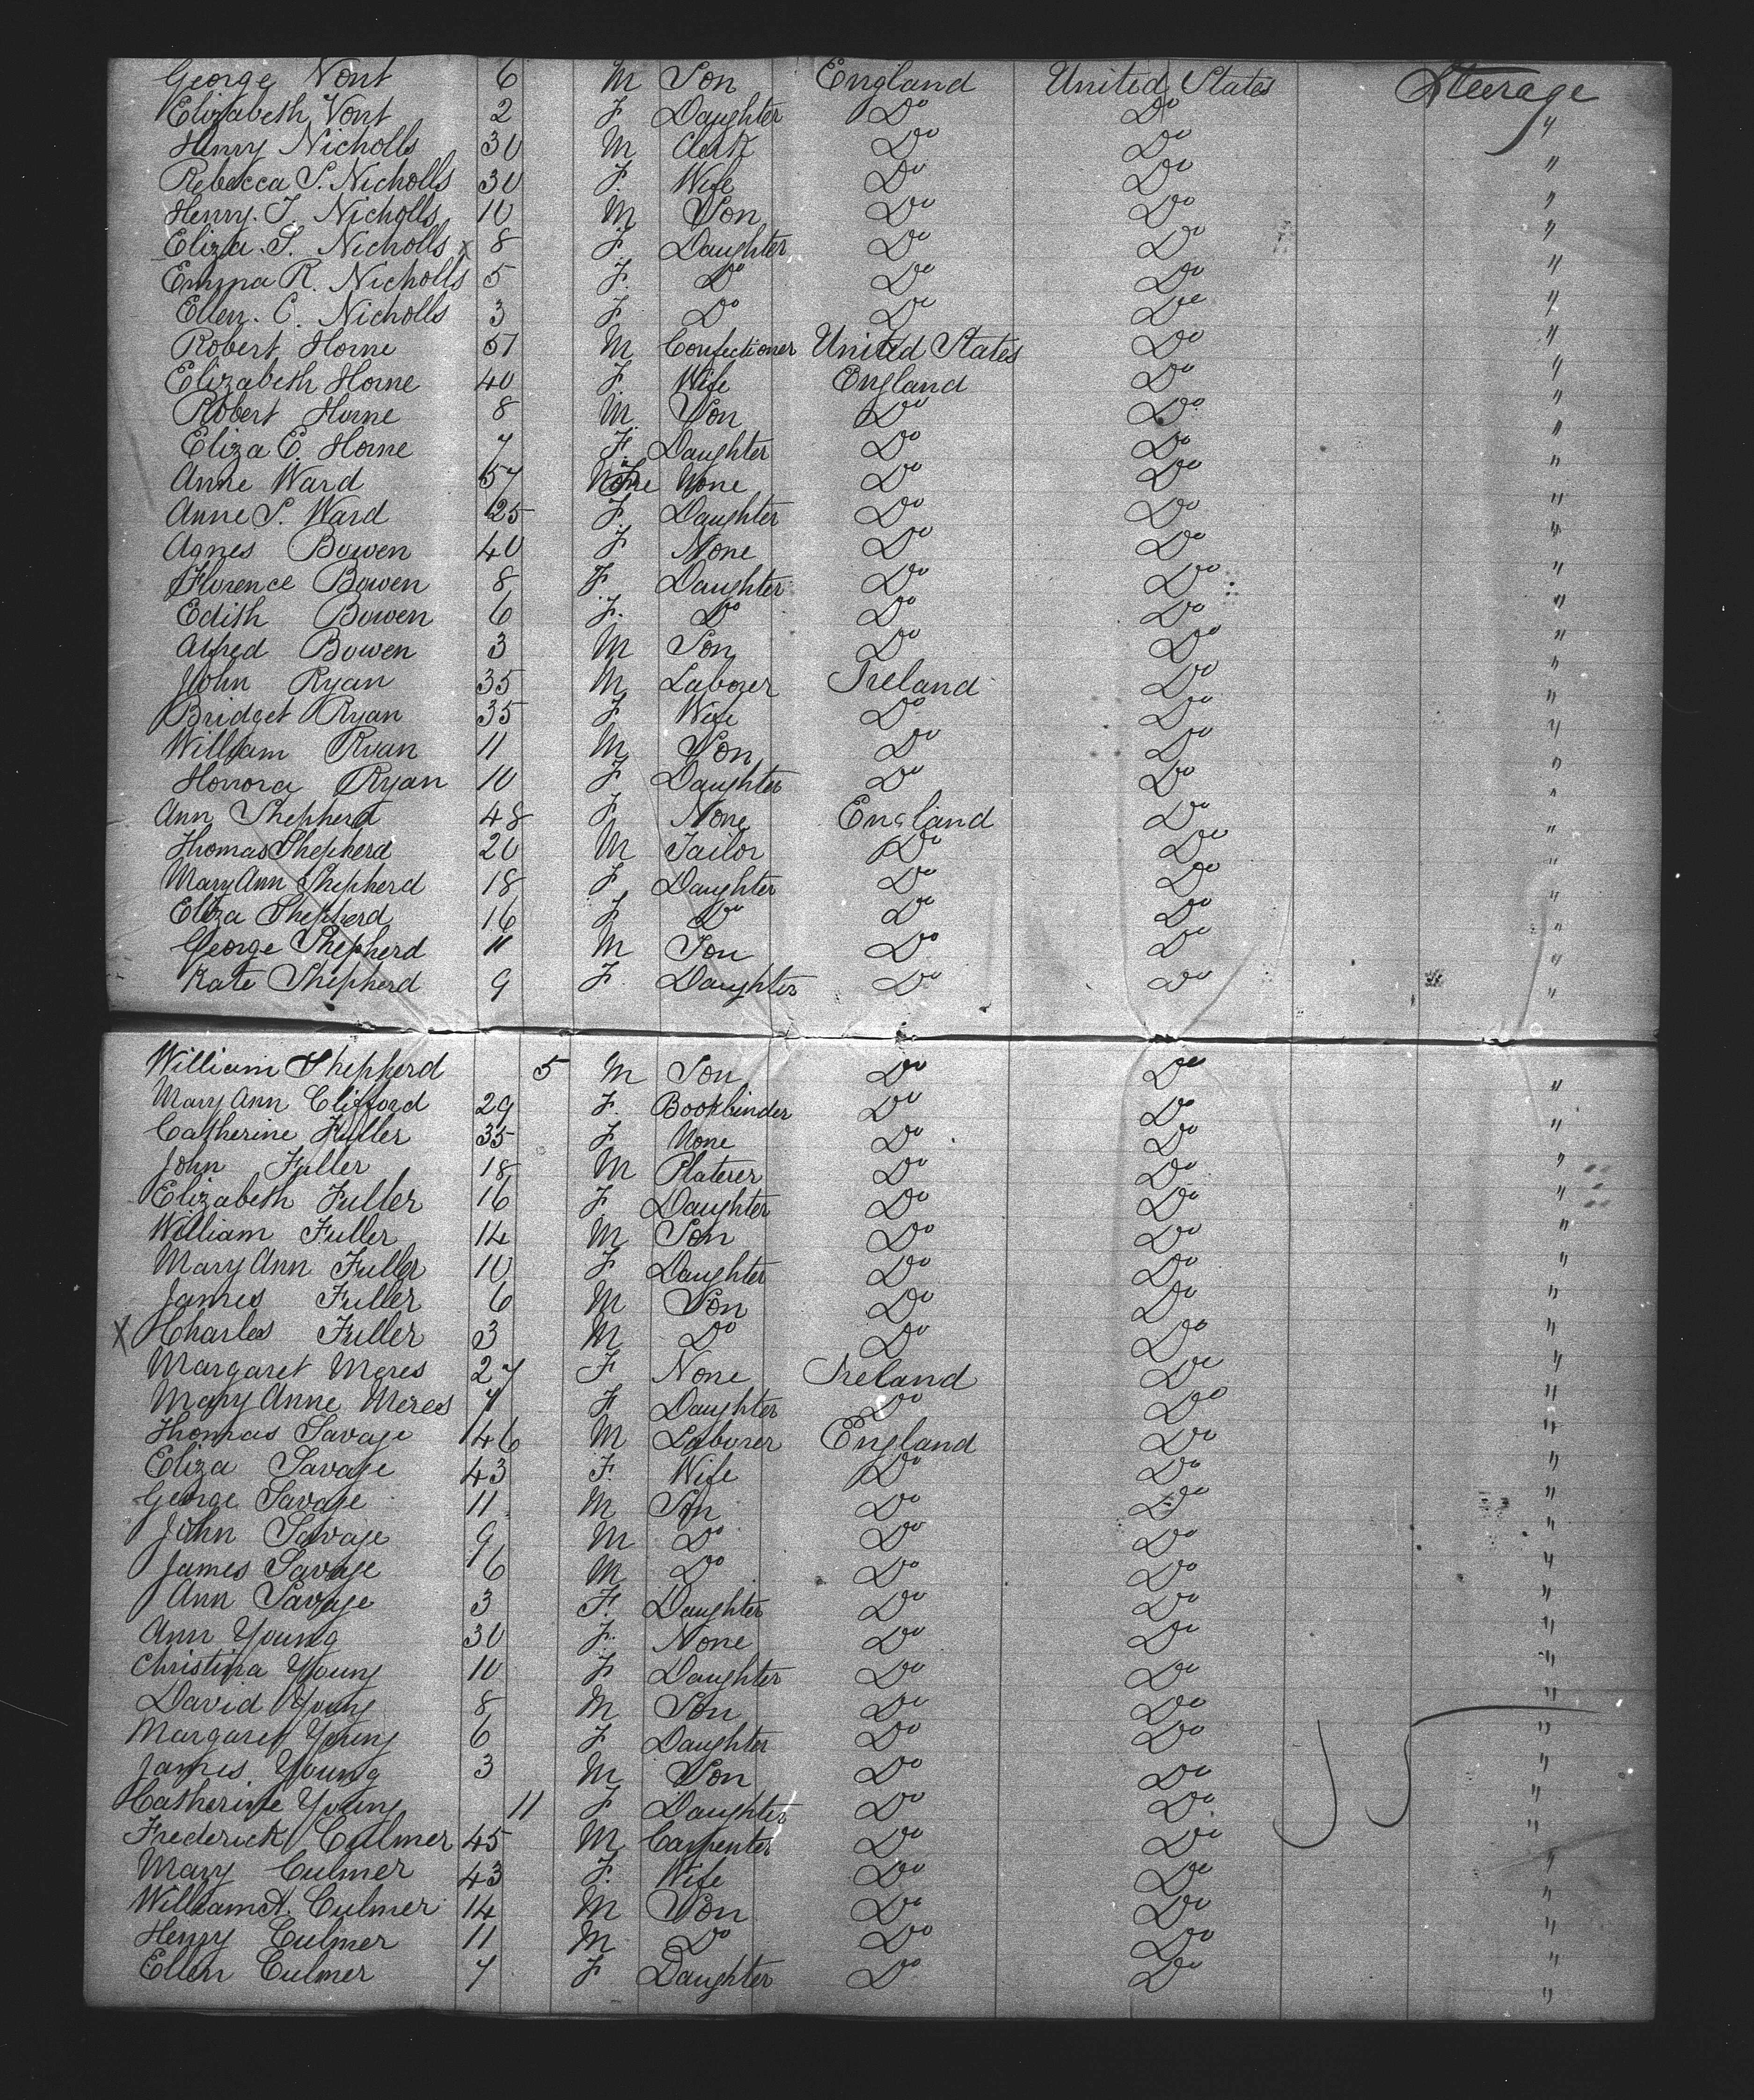 George Vont 6 M Son England United States Steerage
Elizabeth Vont 2 F Daughter Do Do "
Henry Nicholls 30 M Clerk Do Do "
Rebecca S. Nicholls 30 F. Wife Do Do "
Henry. J. Nicholls 10 M Son Do Do "
Eliza. S. Nicholls x 8 F Daughter Do Do "
Emma R. Nicholls 5 F. Do Do Do "
Ellen. C. Nicholls 3 F Do Do Do "
Robert Horne 51 M Confectioner United States Do "
Elizabeth Horne 40 F. Wife England Do "
Robert Horne 8 M. Son Do Do "
Eliza E. Horne 7 F. Daughter Do Do "
Anne Ward 57 F None Do Do "
Anne S. Ward 25 F Daughter Do Do "
Agnes Bowen 40 F None Do Do "
Florence Bowen 8 F. Daughter Do Do "
Edith Bowen 6 F. Do Do Do "
Alfred Bowen 3 M Son Do Do "
John Ryan 35 M Laborer Ireland Do "
Bridget Ryan 35 F Wife Do Do "
William Ryan 11 M Son Do Do "
Honora Ryan 10 F Daughter Do Do "
Ann Shepherd 48 F None England Do "
Thomas Shepherd 20 M Tailor Do Do "
Mary Ann Shepherd 18 F Daughter Do Do "
Eliza Shepherd 16 F Do Do Do "
George Shepherd 11 M Son Do Do "
Kate Shepherd 9 F. Daughter Do Do "
William Shepherd 5 M Son Do Do "
Mary Ann Clifford 29 F. Bookbinder Do Do "
Catherine Fuller 35 F None Do Do "
John Fuller 18 M Platerer Do Do "
Elizabeth Fuller 16 F Daughter Do Do "
William Fuller 14 M Son Do Do "
Mary Ann Fuller 10 F Daughter Do Do "
James Fuller 6 M Son Do Do "
X Charles Fuller 3 M Do Do Do "
Margaret Meres 27 F None Ireland Do "
Mary Anne Meres 7 F Daughter Do Do "
Thomas Savage 46 M Laborer England Do "
Eliza Savage 43 F. Wife Do Do "
George Savage 11 M Son Do Do "
John Savage 9 M Do Do Do "
James Savage 6 M Do Do Do "
Ann Savage 3 F. Daughter Do Do "
Ann Young 30 F. None Do Do "
Christina Young 10 F Daughter Do Do "
David Young 8 M Son Do Do "
Margaret Young 6 F Daughter Do Do "
James Young 3 M Son Do Do "
Catherine Young 11 F Daughter Do Do "
Frederick Culmer 45 M Carpenter Do Do "
Mary Culmer 43 F. Wife Do Do "
William A. Culmer 14 M Son Do Do "
Henry Culmer 11 M Do Do Do "
Ellen Culmer 7 F Daughter Do Do "